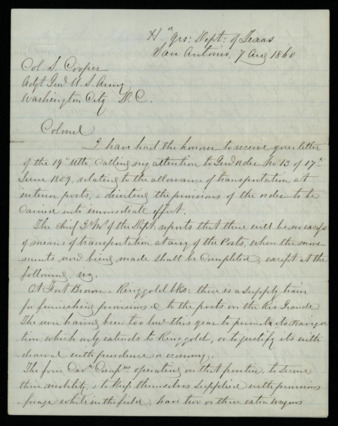 Hd Qrs: Dept: of Texas
San Antonio, 7 Aug 1860
Col S. Cooper
Adjt Genl U. S. Army
Washington City D. C.
Colonel
I have had the honour to receive your letter
of the 19th ulto calling my attention to Genl Order No 13 of 17th
June 1859, relating to the allowance of transportation at
interior posts, & directing the provisions of the order to be
carried into immediate effect.
The Chief Qr Mr of the Dept. reports that there will be no excess
of means of transportation at any of the Posts, when the move
ments now being made shall be completed, except at the
following, viz.
At Fort Brown & Ringgold Bks: there is a supply train
for furnishing provisions &c to the posts on the Rio Grande
The river having been too low this year to permit its navigation
, which only extends to Ringgold, or to justify its with
drawal with prudence or economy.
The four Cavy Comps operating on that frontier, to secure
their mobility, & to keep themselves supplied with provisions
& forage while in the field, have two or three extra wagons